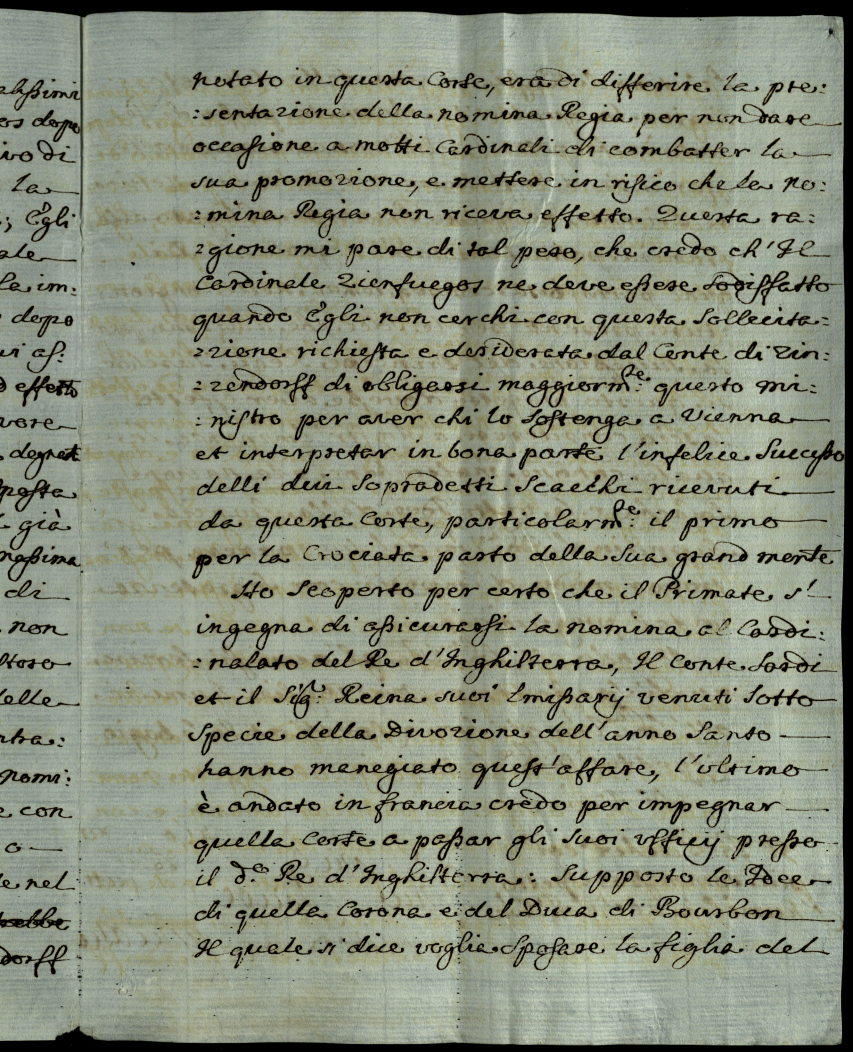 notato in questa Corte, era di differire la pre:
:sentazione della nomina Regia per non dare
occasione a molti Cardinali di combatter la
sua promozione, e mettere in risico che la no:
:mina Regia non riceva effetto. Questa ra:
:gione mi pare di tal peso, che credo ch'Il
Cardinale Zienfuegos ne deve essere sodisffatto
quando Egli non cerchi con questa sollecita:
:zione richiesta e desiderata dal Conte di Zin:
:zendorff di obligarsi maggiorm.te questo mi:
:nistro per aver chi lo sostenga a Vienna
et interpretar in bona parte l'infelice Successo
delli dui sopradetti Scacchi ricevuti
da questa Corte, particolarm.te il primo
per la Crociata parto della sua grand mente
Ho scoperto per certo che il Primate s'
ingegna di assicurarsi la nomina al Cardi:
:nalato del Re d'Inghilterra, Il Conte Sardi
et il Sig.r Reina suoi Emissarij venuti sotto
specie della Divozione dell'anno Santo
hanno manegiato quest'affare, l'ultimo
è andato in francia credo per impegnar
quella Corte a passar gli suoi uffiij presso
il d.o Re d'Inghilterra: supposto le Idee
di quella Corona e del Duca di Bourbon
Il quale si dice voglia sposare la figlia del
alissimi
ers dopo
ivo di
la
; Egli
ale
la im:
dopo
ui as:
effetto
vore
degnat
posta
già
ngssima
di
non
storo
delle
ntra:
nomi:
e con
o
le nel
dorff